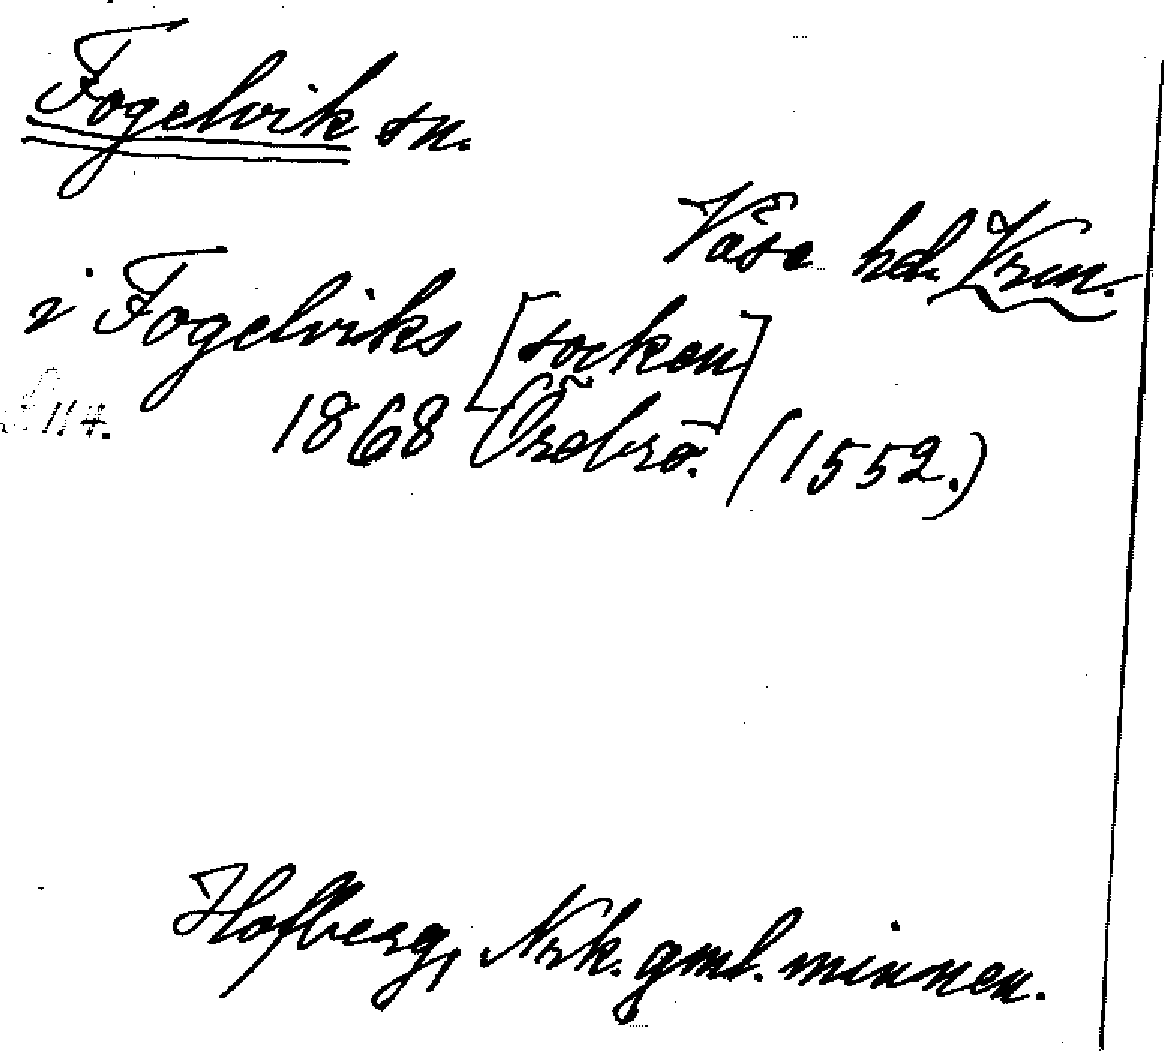 Fogelvik sn.
Väse hd. Vrm.
i Fogelviks [socken]
S. 114. 1868 Örebro. (1552.)
Hofberg, Nrk. gml. minnen.